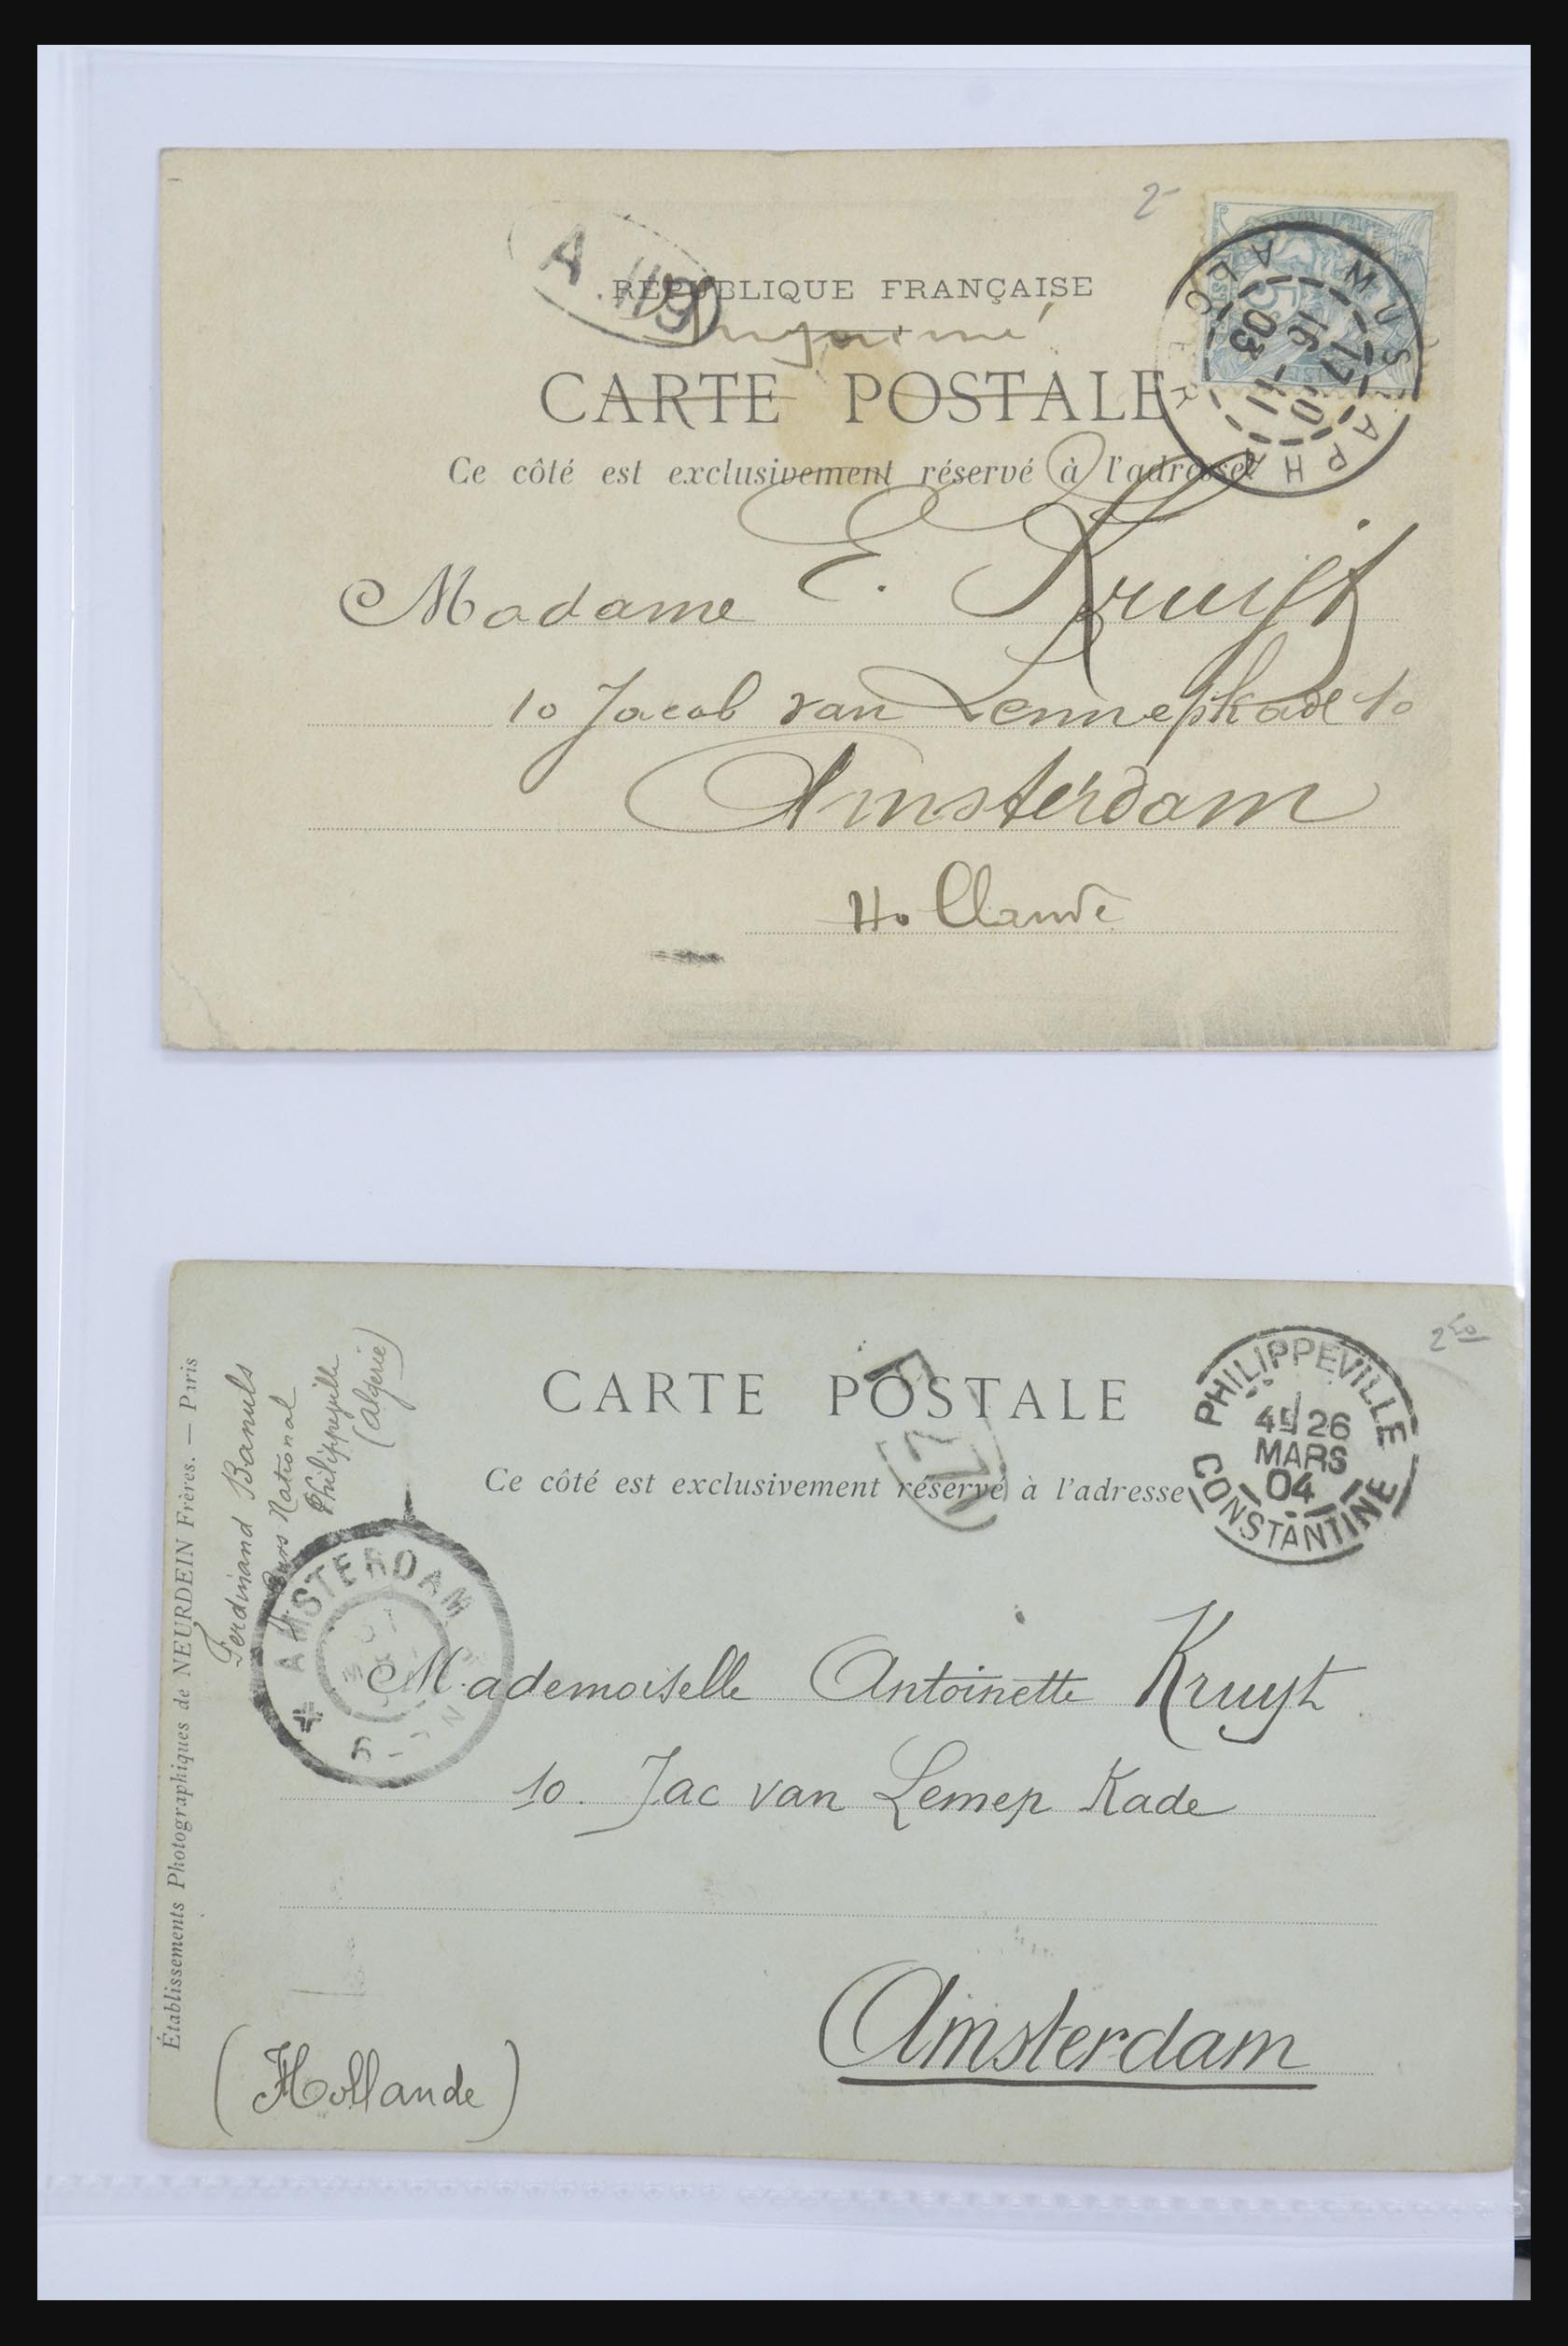 2-
A 119
RÉPUBLIQUE FRANÇAISE
Imprimé
CARTE POSTALE
Ce côté est exclusivement réservé à l'adresse
MUSTAPHA ALGER
17 10
16 - 11
03
Madame E. Kruijt
10 Jacob van Lennepkade 10
Amsterdam
Hollande
2 50
CARTE POSTALE
Ce côté est exclusivement réservé à l'adresse
PHILIPPEVILLE
4E 26
MARS
04
CONSTANTINE
Établissements Photographiques de NEURDEIN Frères. — Paris
Ferdinand Banuls
Cours National
Philippeville
(Algerie)
AMSTERDAM
Mademoiselle Antoinette Kruyt
10. Jac van Lennep Kade
Amsterdam
(Hollande)